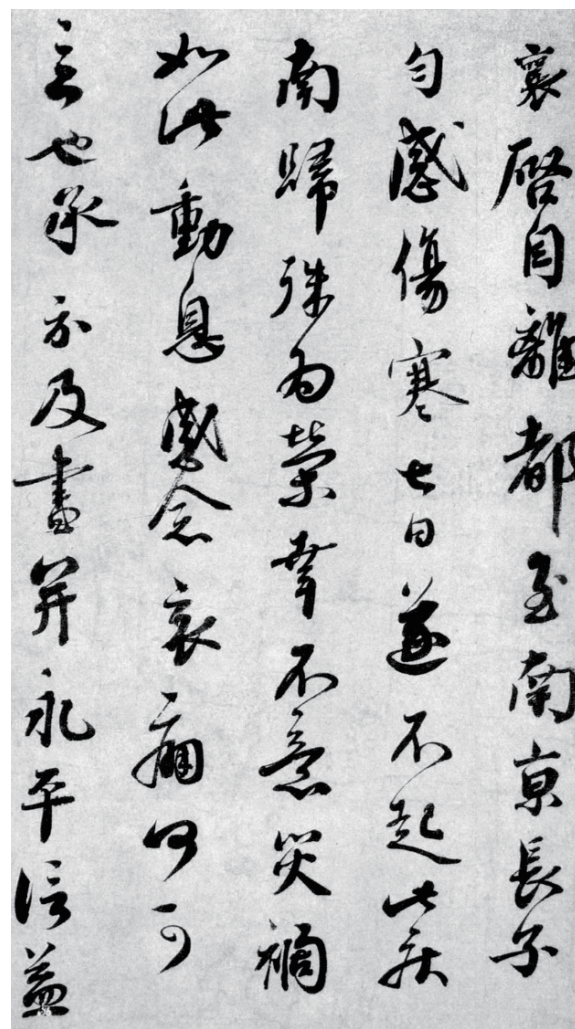 襄啓自離都至南京長子
匀感傷寒七日遂不起此疾
南歸殊為榮幸不意災禍
如此動息感念哀痛何可
言也承示及書并永平信益